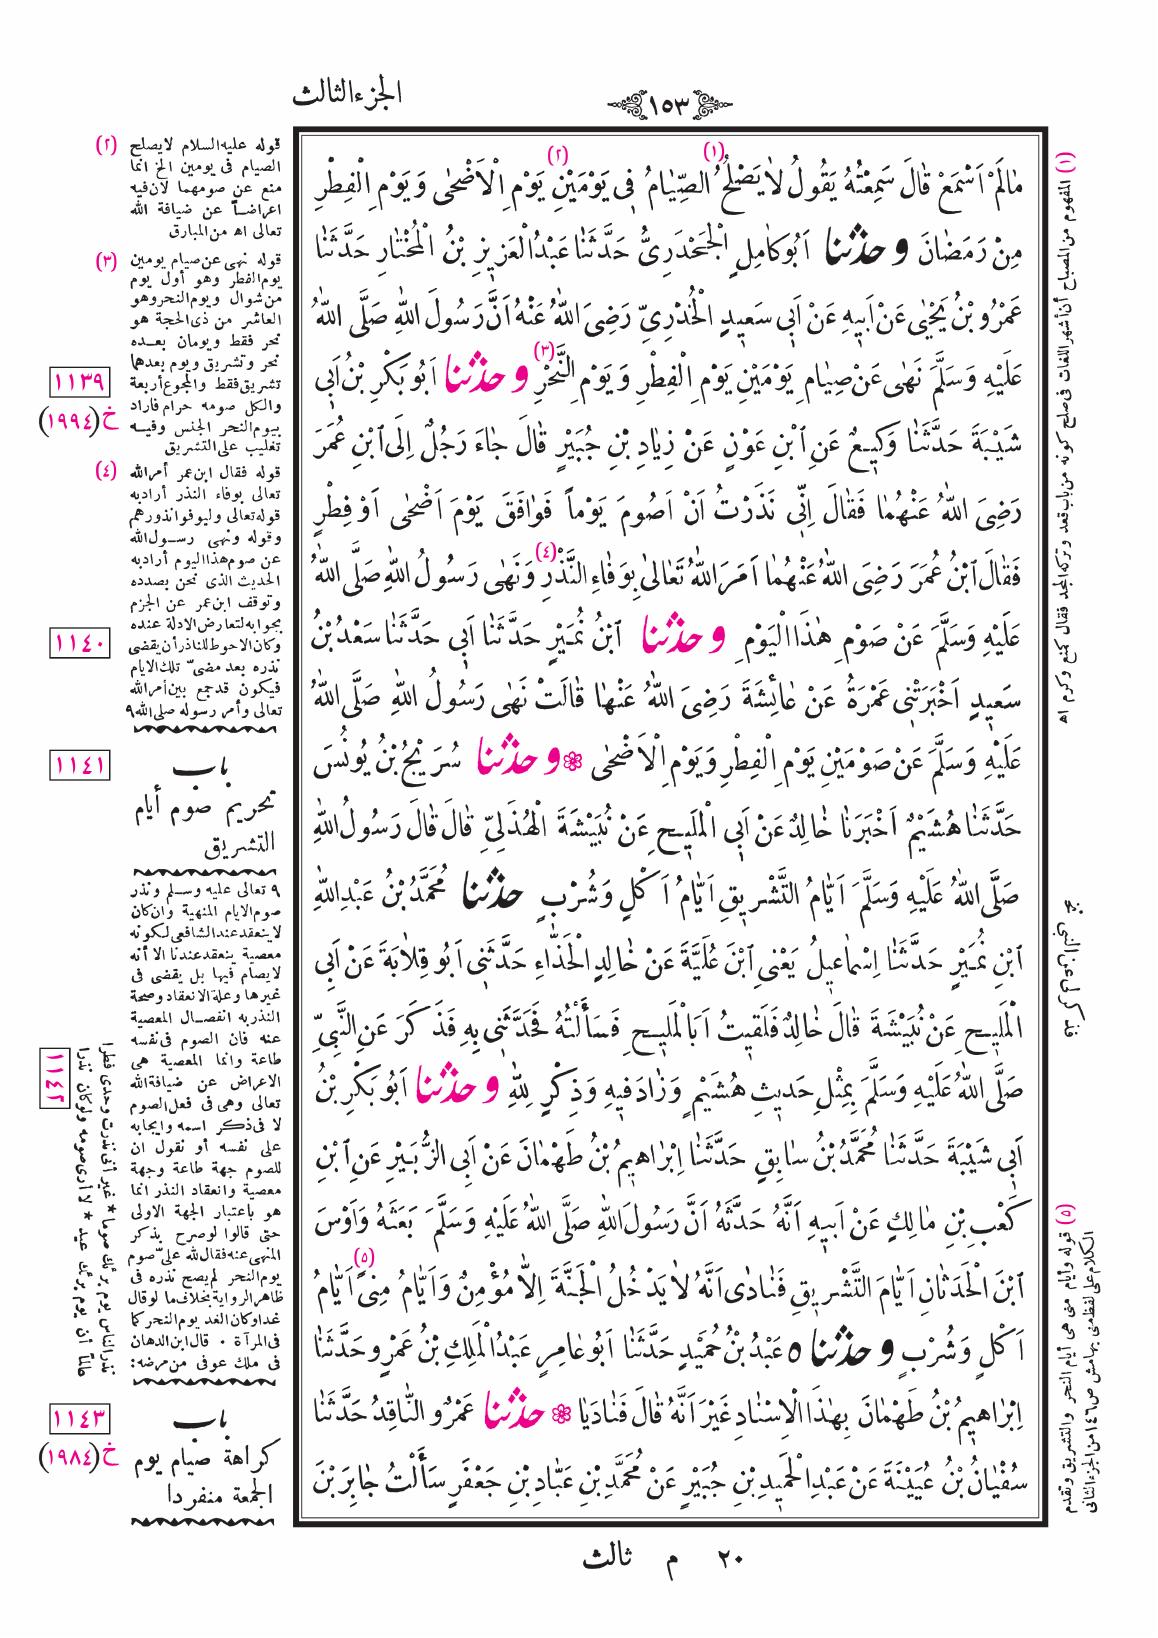 الجزء الثالث
١٥٣
مَالَمْ اَسْمَعْ قَالَ سَمِعْتُهُ يَقُولُ لَا يَصْلُحُ (١) الصِّيَامُ فِى يَوْمَيْنِ (٢) يَوْمِ الْاَضْحٰى وَيَوْمِ الْفِطْرِ
مِنْ رَمَضَانَ وحدثنا اَبُوكَامِلٍ الْجَحْدَرِىُّ حَدَّثَنَا عَبْدُالْعَزِيزِ بْنُ الْمُخْتَارِ حَدَّثَنَا
عَمْرُو بْنُ يَحْيٰى عَنْ اَبِيهِ عَنْ اَبِى سَعِيدٍ الْخُدْرِىِّ رَضِىَ اللّٰهُ عَنْهُ اَنَّ رَسُولَ اللّٰهِ صَلَّى اللّٰهُ
عَلَيْهِ وَسَلَّمَ نَهٰى عَنْ صِيَامِ يَوْمَيْنِ يَوْمِ الْفِطْرِ وَيَوْمِ النَّحْرِ (٣) وحدثنا اَبُو بَكْرِ بْنُ اَبِى
شَيْبَةَ حَدَّثَنَا وَكِيعٌ عَنِ ابْنِ عَوْنٍ عَنْ زِيَادِ بْنِ جُبَيْرٍ قَالَ جَاءَ رَجُلٌ اِلَى ابْنِ عُمَرَ
رَضِىَ اللّٰهُ عَنْهُمَا فَقَالَ اِنِّى نَذَرْتُ اَنْ اَصُومَ يَوْماً فَوَافَقَ يَوْمَ اَضْحٰى اَوْ فِطْرٍ
فَقَالَ ابْنُ عُمَرَ رَضِىَ اللّٰهُ عَنْهُمَا اَمَرَ اللّٰهُ تَعَالٰى بِوَفَاءِ النَّذْرِ (٤) وَنَهٰى رَسُولُ اللّٰهِ صَلَّى اللّٰهُ
عَلَيْهِ وَسَلَّمَ عَنْ صَوْمِ هٰذَا الْيَوْمِ وحدثنا ابْنُ نُمَيْرٍ حَدَّثَنَا اَبِى حَدَّثَنَا سَعْدُ بْنُ
سَعِيدٍ اَخْبَرَتْنِى عَمْرَةُ عَنْ عَائِشَةَ رَضِىَ اللّٰهُ عَنْهَا قَالَتْ نَهٰى رَسُولُ اللّٰهِ صَلَّى اللّٰهُ
عَلَيْهِ وَسَلَّمَ عَنْ صَوْمَيْنِ يَوْمِ الْفِطْرِ وَيَوْمِ الْاَضْحٰى وحدثنا سُرَيْجُ بْنُ يُونُسَ
حَدَّثَنَا هُشَيْمٌ اَخْبَرَنَا خَالِدٌ عَنْ اَبِى الْمَلِيحِ عَنْ نُبَيْشَةَ الْهُذَلِىِّ قَالَ قَالَ رَسُولُ اللّٰهِ
صَلَّى اللّٰهُ عَلَيْهِ وَسَلَّمَ اَيَّامُ التَّشْرِيقِ اَيَّامُ اَكْلٍ وَشُرْبٍ حدثنا مُحَمَّدُ بْنُ عَبْدِاللّٰهِ
ابْنِ نُمَيْرٍ حَدَّثَنَا اِسْمَاعِيلُ يَعْنِى ابْنَ عُلَيَّةَ عَنْ خَالِدٍ الْحَذَّاءِ حَدَّثَنِى اَبُو قِلَابَةَ عَنْ اَبِى
الْمَلِيحِ عَنْ نُبَيْشَةَ قَالَ خَالِدٌ فَلَقِيتُ اَبَا الْمَلِيحِ فَسَأَلْتُهُ فَحَدَّثَنِى بِهِ فَذَكَرَ عَنِ النَّبِىِّ
صَلَّى اللّٰهُ عَلَيْهِ وَسَلَّمَ بِمِثْلِ حَدِيثِ هُشَيْمٍ وَزَادَ فِيهِ وَذِكْرٍ لِلّٰهِ وحدثنا اَبُو بَكْرِ بْنُ
اَبِى شَيْبَةَ حَدَّثَنَا مُحَمَّدُ بْنُ سَابِقٍ حَدَّثَنَا اِبْرَاهِيمُ بْنُ طَهْمَانَ عَنْ اَبِى الزُّبَيْرِ عَنِ ابْنِ
كَعْبِ بْنِ مَالِكٍ عَنْ اَبِيهِ اَنَّهُ حَدَّثَهُ اَنَّ رَسُولَ اللّٰهِ صَلَّى اللّٰهُ عَلَيْهِ وَسَلَّمَ بَعَثَهُ وَاَوْسَ
ابْنَ الْحَدَثَانِ اَيَّامَ التَّشْرِيقِ فَنَادٰى اَنَّهُ لَا يَدْخُلُ الْجَنَّةَ اِلَّا مُؤْمِنٌ وَاَيَّامُ مِنًى (٥) اَيَّامُ
اَكْلٍ وَشُرْبٍ وحدثنا ٥ عَبْدُ بْنُ حُمَيْدٍ حَدَّثَنَا اَبُو عَامِرٍ عَبْدُ الْمَلِكِ بْنُ عَمْرٍو حَدَّثَنَا
اِبْرَاهِيمُ بْنُ طَهْمَانَ بِهٰذَا الْاِسْنَادِ غَيْرَ اَنَّهُ قَالَ فَنَادَيَا حدثنا عَمْرٌو النَّاقِدُ حَدَّثَنَا
سُفْيَانُ بْنُ عُيَيْنَةَ عَنْ عَبْدِ الْحَمِيدِ بْنِ جُبَيْرٍ عَنْ مُحَمَّدِ بْنِ عَبَّادِ بْنِ جَعْفَرٍ سَأَلْتُ جَابِرَ بْنَ
(١) المفهوم من المصباح أن أشهر اللغات فى صلح كونه من باب قعد وتركه المجد فقال كمنع وكرم اه
(٥) قوله وأيام منى هى أيام النحر والتشريق وتقدم
الكلام على لفظ منى بهامش ص ١٤٦ من الجزء الثانى
(٢) قوله عليه السلام لا يصلح
الصيام فى يومين الخ انما
منع عن صومهما لان فيه
اعراضاً عن ضيافة الله
تعالى اه من المبارق
(٣) قوله نهى عن صيام يومين
يوم الفطر وهو أول يوم
من شوال ويوم النحر وهو
العاشر من ذى الحجة هو
نحر فقط ويومان بعده
نحر وتشريق ويوم بعدها
تشريق فقط والمجموع أربعة
والكل صومه حرام فاراد
بيوم النحر الجنس وفيه
تغليب على التشريق
(٤) قوله فقال ابن عمر أمر الله
تعالى بوفاء النذر أراد به
قوله تعالى وليوفوا نذورهم
وقوله ونهى رسول الله
عن صوم هذا اليوم أراد به
الحديث الذى نحن بصدده
وتوقف ابن عمر عن الجزم
بجوابه لتعارض الادلة عنده
وكان الاحوط للناذر أن يقضى
نذره بعد مضىّ تلك الايام
فيكون قد جمع بين أمر الله
تعالى وأمر رسوله صلى الله ٩
باب
تحريم صوم أيام
التشريق
٩ تعالى عليه وسلم ونذر
صوم الايام المنهية وان كان
لا ينعقد عند الشافعى لكونه
معصية ينعقد عندنا الا أنه
لا يصام فيها بل يقضى فى
غيرها وعلة الانعقاد وصحة
النذر به انفصال المعصية
عنه فان الصوم فى نفسه
طاعة وانما المعصية هى
الاعراض عن ضيافة الله
تعالى وهى فى فعل الصوم
لا فى ذكر اسمه وايجابه
على نفسه أو نقول ان
للصوم جهة طاعة وجهة
معصية وانعقاد النذر انما
هو باعتبار الجهة الاولى
حتى قالوا لو صرح بذكر
المنهى عنه فقال لله علىّ صوم
يوم النحر لم يصح نذره فى
ظاهر الرواية بخلاف ما لو قال
غدا وكان الغد يوم النحر كما
فى المرآة . قال ابن الدهان
فى ملك عوفى من مرضه:
نذر الناس يوم برئك صوما * غير أنى نذرت وحدى فطرا
عالماً أن يوم برئك عيد * لا أرى صومه ولو كان نذرا
باب
كراهة صيام يوم
الجمعة منفردا
١١٣٩
خ (١٩٩٤)
١١٤٠
١١٤١
١١٤٢
١١٤٣
خ (١٩٨٤)
٢٠ م ثالث